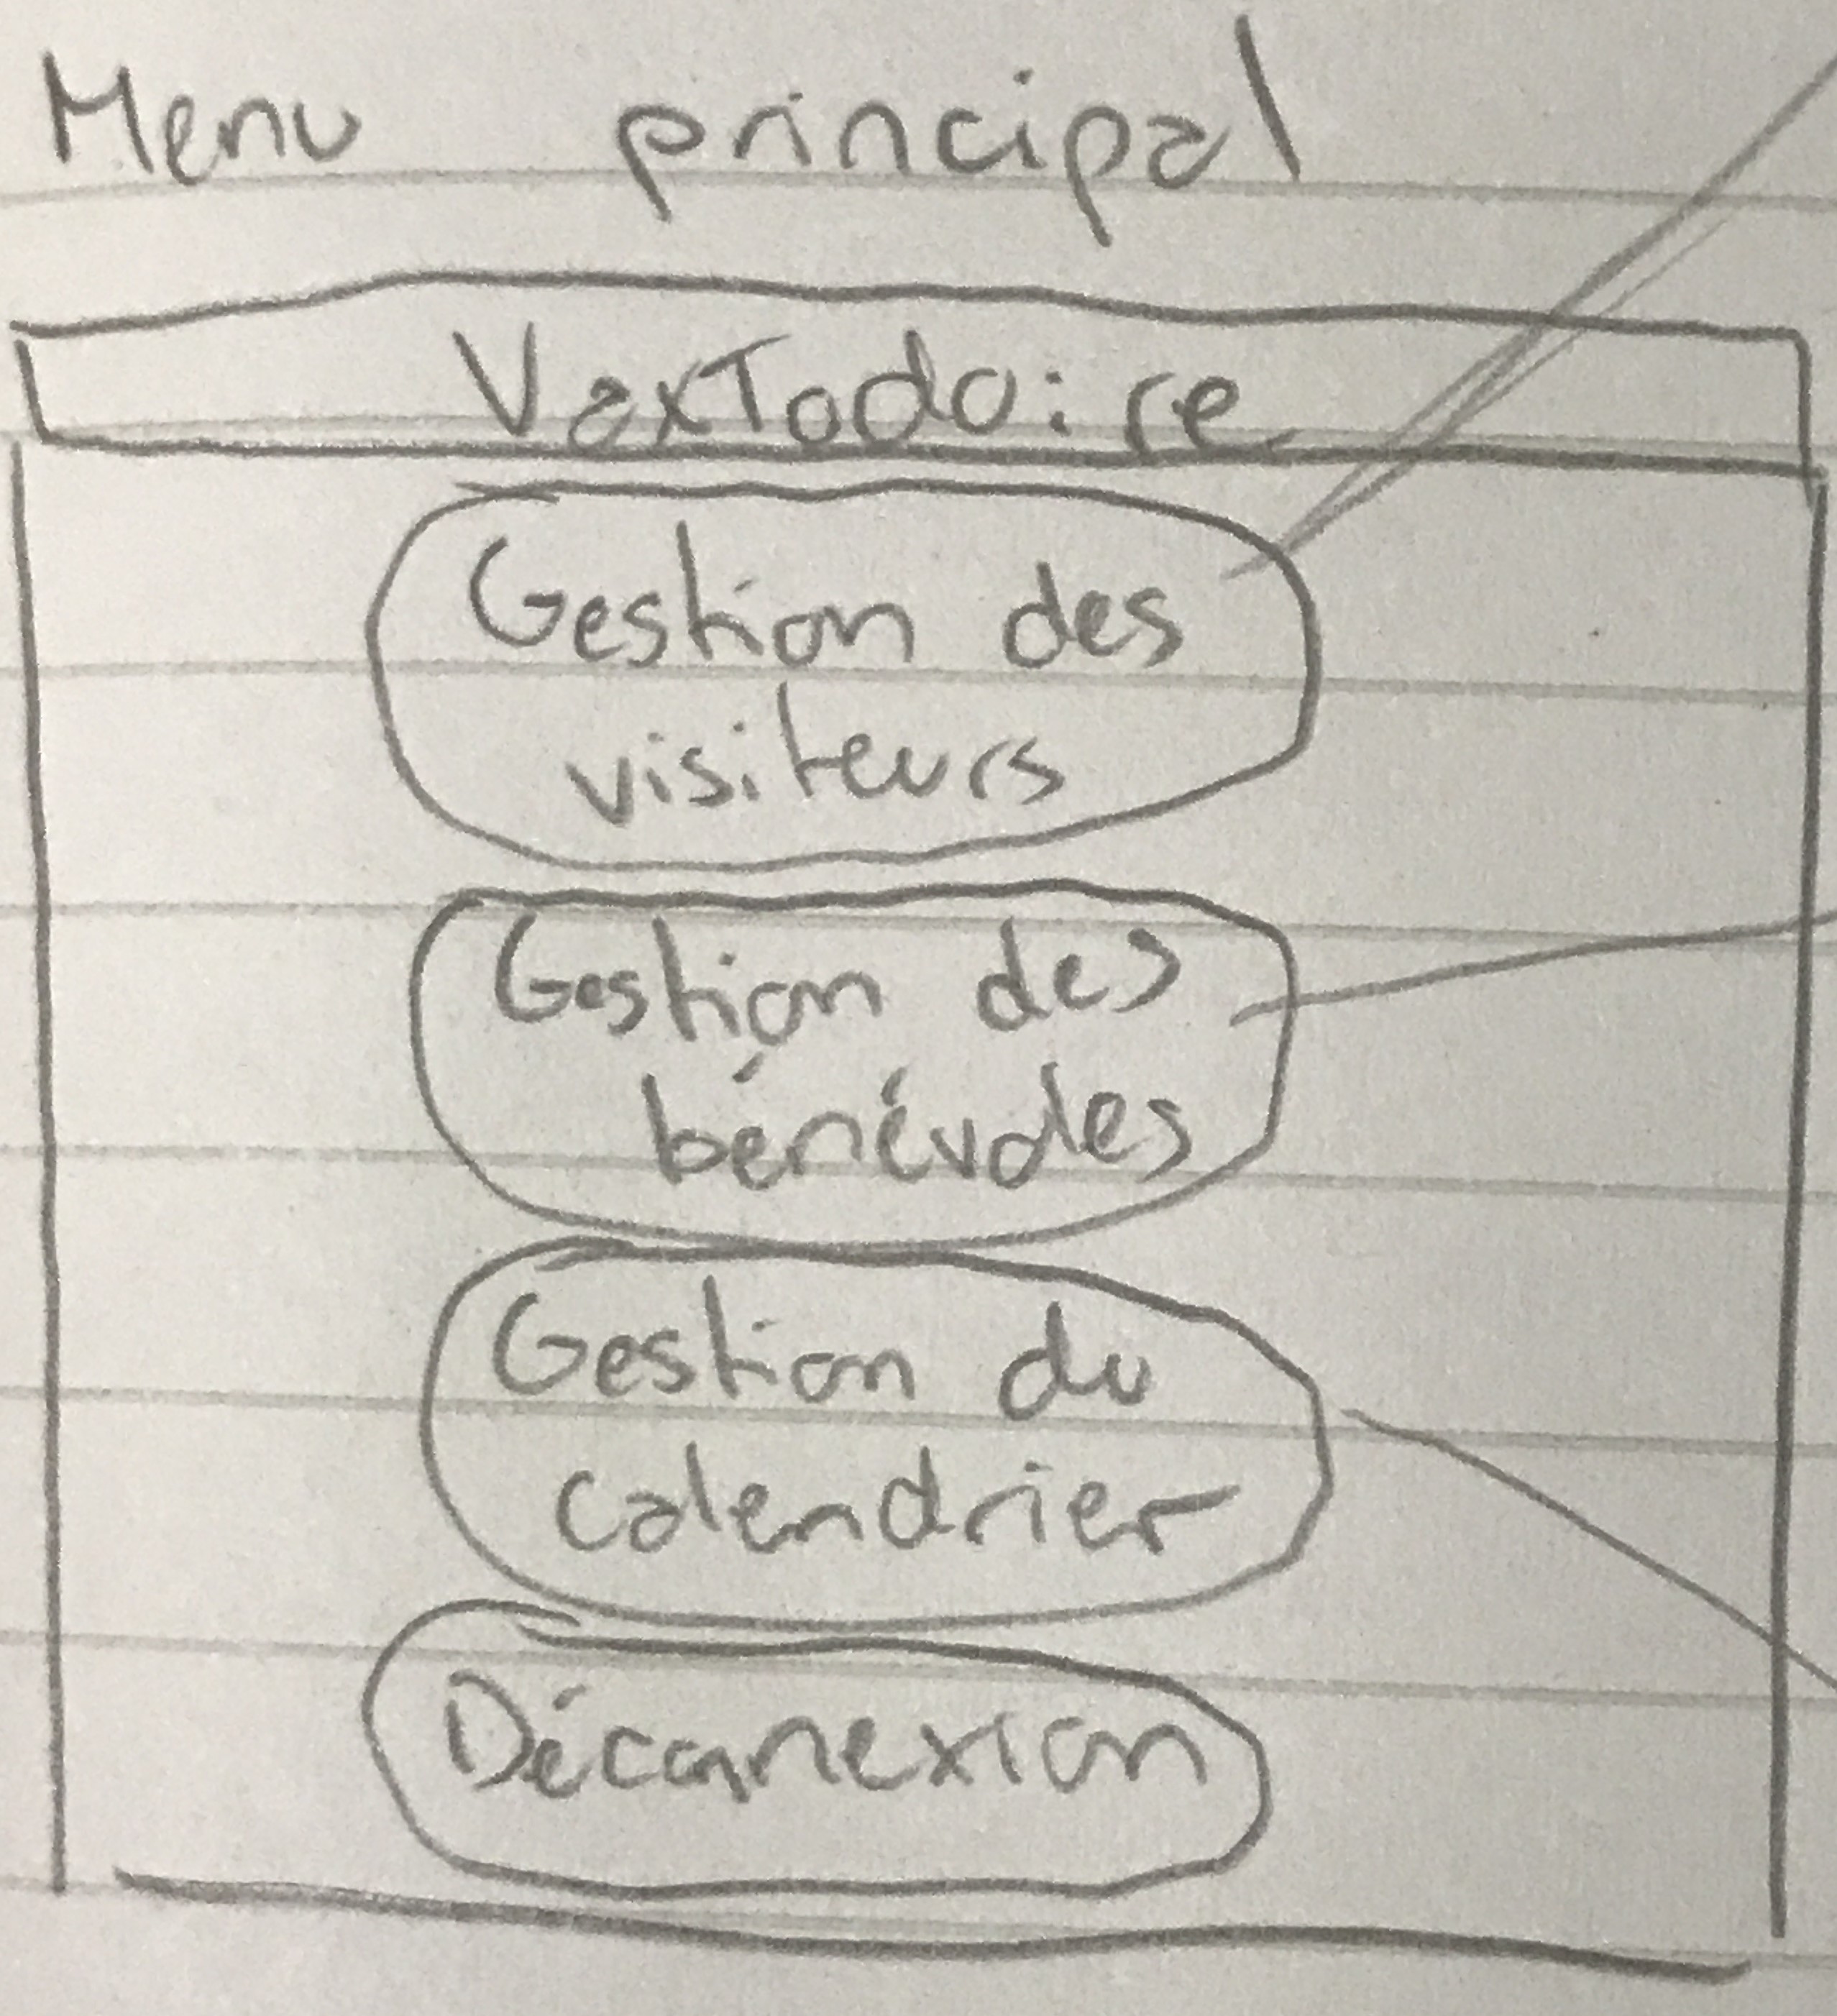 Menu principal
VaxTodoire
Gestion des
visiteurs
Gestion des
bénévoles
Gestion du
calendrier
Déconnexion